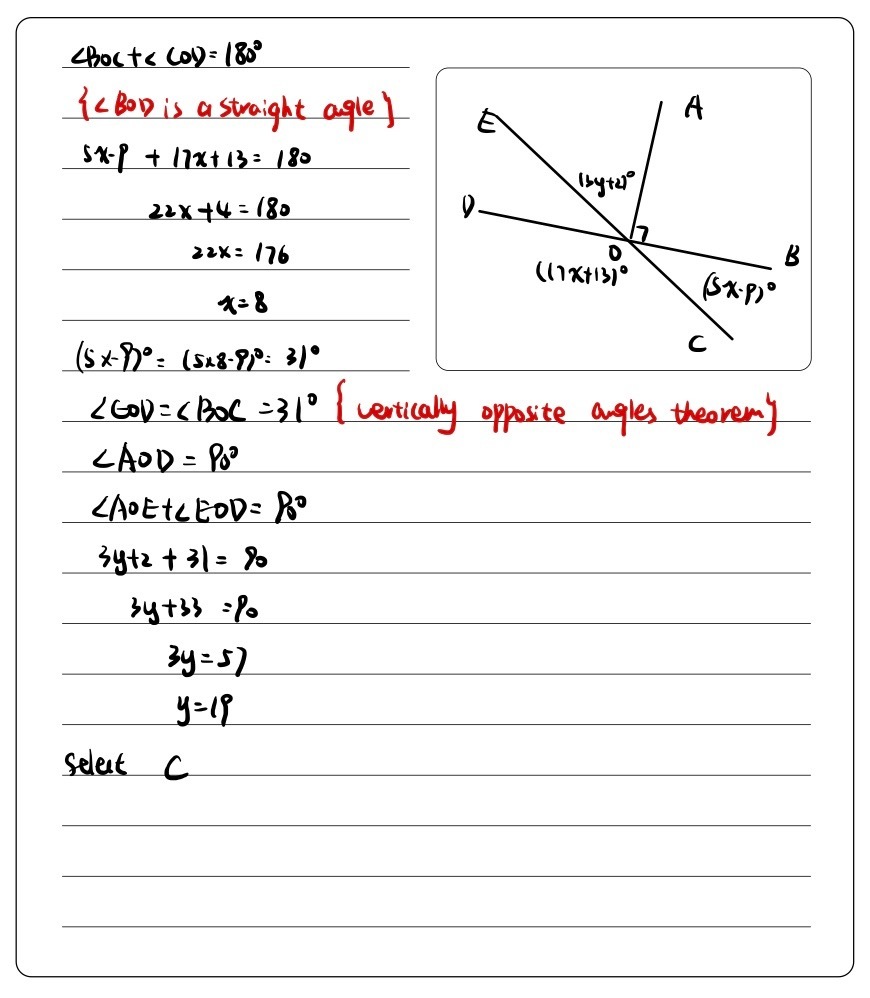 ∠BOC+∠COD=180°
{∠BOD is a straight angle}
5x-9 + 17x+13= 180
22x+4=180
22x= 176
x=8
(5x-9)°= (5x8-9)°= 31°
∠EOD=∠BOC =31° {vertically opposite angles theorem}
∠AOD = 90°
∠AOE+∠EOD= 90°
3y+2 + 31= 90
3y+33 =90
3y=57
y=19
Select C
A
E
(3y+2)°
D
B
O
(17x+13)°
(5x-9)°
C